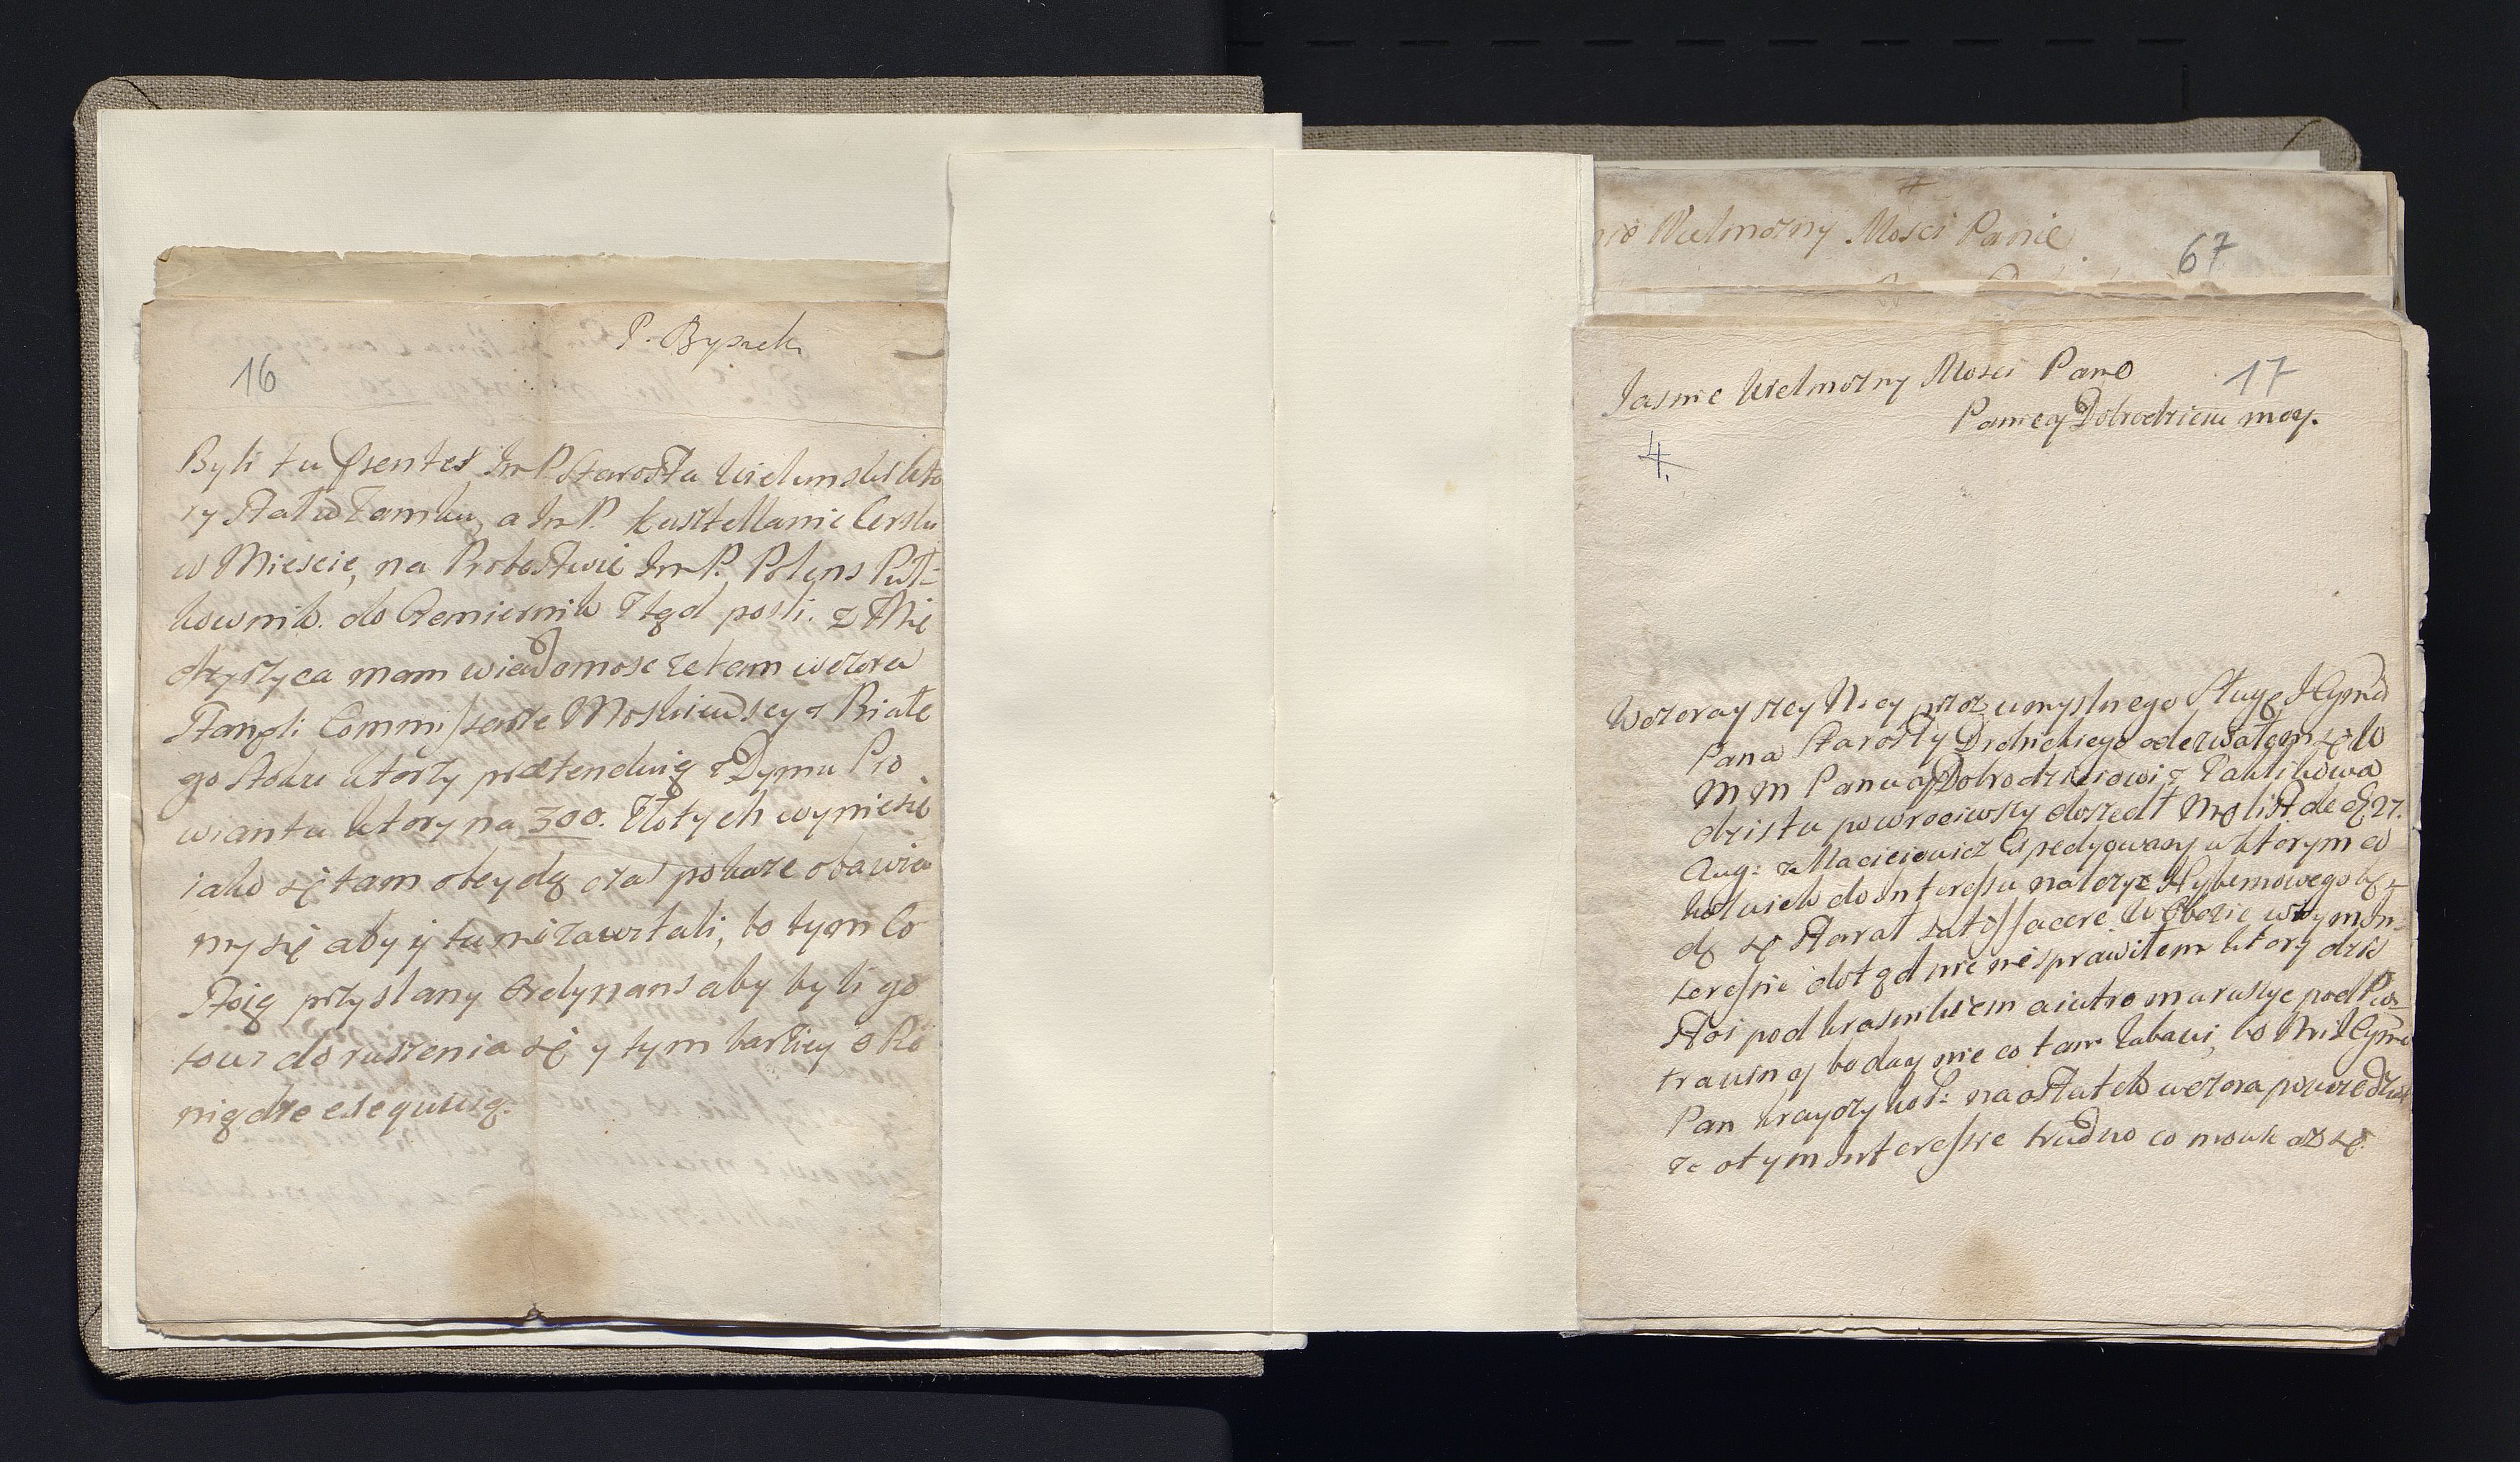 P. Byszek
16
Byli tu præsentes Im P. Starosta Wielunski kto
ry stał w Zamku, a Im P. Kasztellanic Cersk
w Miescie, na Probostwie Im P. Polens Puł-
kownik. do Czemiernik ztąd posli. z Mię
dzyrzyca mam wiadomosc ze tam wczora
stanęli Commissarze Moskiewscy z Białe
go stoku ktorzy prætenduią z Dymu Pro
wiantu ktory na 300. Złotych wyniesie
iako się tam obeydą czas pokaze obawia
my się aby y tu nie zawitali, bo tym co
stoią przysłany Ordynans aby byli go
towi do ruszenia się y tym barziey
nigdze exequuią.
Wielmozny Mosci Panie
67
Jasnie Wielmozny Mosci Panie
17
Panie y Dobrodzieiu moy.
4.
Wczorayszey Nocy przez umyslnego Sługę JEgmci
Pana Starosty Drohickiego odezwałem się do
M M Pana y Dobrodzieiowi z Pawlikowa
dzis tu powrociwszy doszedł mię list de d. 27.
Aug: z Macieiowicz Expedyowany w ktorym co
kolwiek do Interessu nalezyc Hybernowego bę-
dę się starał satisfacere. W Obozie w tym In-
teressie dotąd nic nie sprawiłem ktory dzis
stoi pod Krasnikiem a iutro maruszye pod
trawing boday nie co tam zabawi, bo Mi JEgmc
Pan Krayczy Kor: na ostatek wczora powiedział
ze o tym Interessie trudno co mowic az się